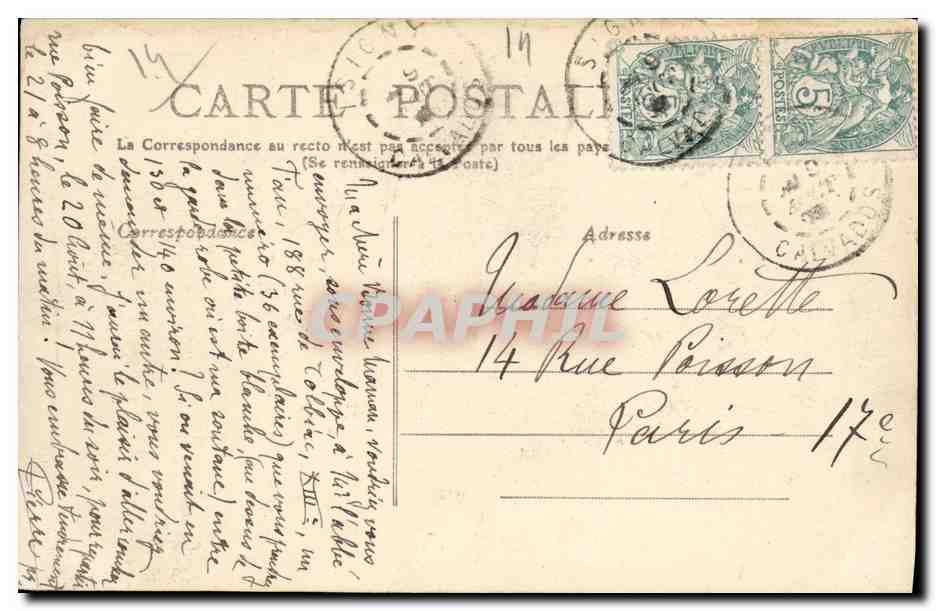 14
14
CARTE POSTALE
La Correspondance au recto n'est pas acceptée par tous les pays
(Se renseigner à la Poste)
Correspondance
Adresse
ISIGNY
CALVADOS
CALVADOS
POSTES
5
POSTES
5
Madame Lorette
14 Rue Poisson
Paris 17e
Ma chère bonne Maman, voudriez vous
envoyer, sous enveloppe, à Mr l'abbé
188 rue de Tolbiac, XIIIe, un
numéro (36 exemplaires) que vous
dans la petite boîte blanche, (au dessus de
la garde robe où est ma soutane) entre
130 et 140 environ? Si on venait en
demander un autre, vous voudriez
bien faire de même. J'aurai le plaisir d'aller
rue Poisson, le 20 Août, à 11 heures du soir, pour repartir
le 21 à 8 heures du matin! Vous embrasse tendrement
Pierre
CPAPHIL